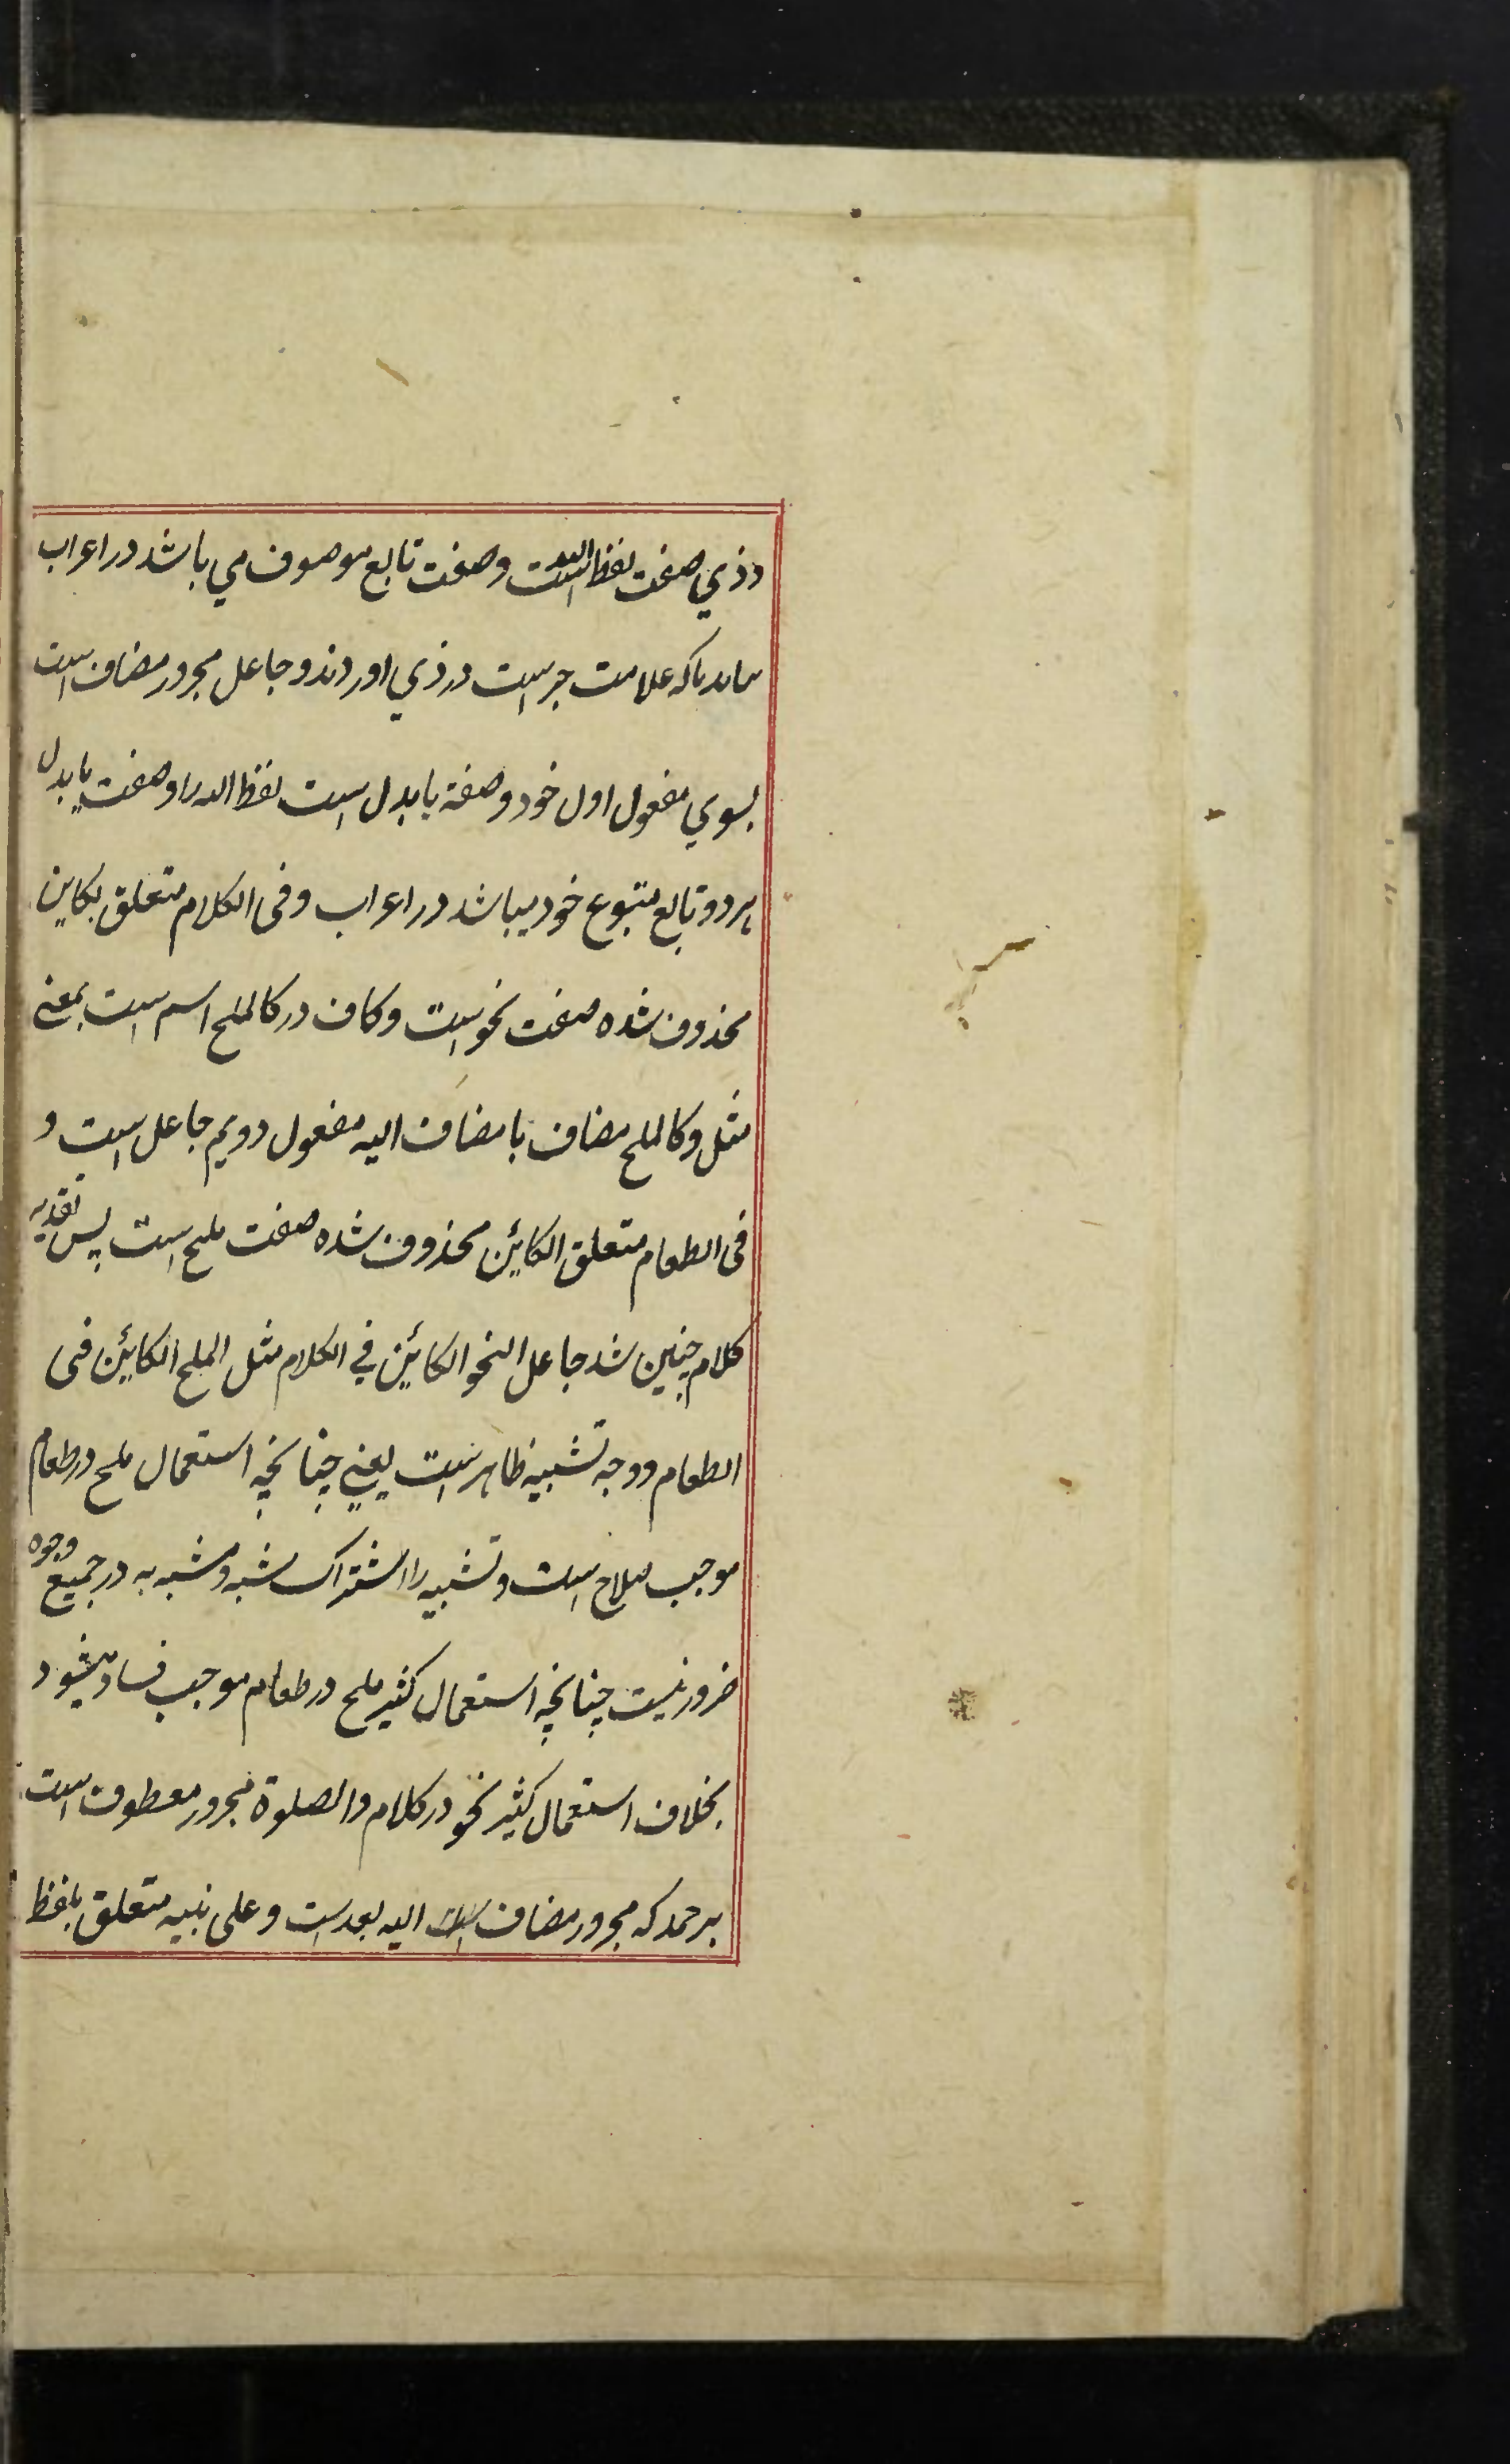 وذي صفت لفظ الله است وصفت تابع موصوف مي باشد در اعراب
كه علامت جر است در ذي اوردند و جاعل مجرور مضاف است
بسوي مفعول اول خود وصفة يا بدل است لفظ الله را وصفت يا بدل
هردو تابع متبوع خود ميباشد در اعراب وفى الكلام متعلق بكاين
محذوف شده صفت نحو است وكاف در كالملح اسم است بمعني
مثل وكالملح مضاف با مضاف اليه مفعول دويم جاعل است و
فى الطعام متعلق الكائن محذوف شده صفت ملح است پس تقدير
كلام چنين شد جاعل النحو الكائن في الكلام مثل الملح الكائن فى
الطعام ووجه تشبيه ظاهر است يعني چنانچه استعمال ملح در طعام
موجب صلاح است وتشبيه را اشتراك مشبه ومشبه به در جميع وجوه
ضرور نيست چنانچه استعمال كثير ملح در طعام موجب فساد ميشود
بخلاف استعمال كثير نحو در كلام والصلوة مجرور معطوف است
بر حمد كه مجرور مضاف است اليه بعد است وعلى نبيه متعلق بلفظ